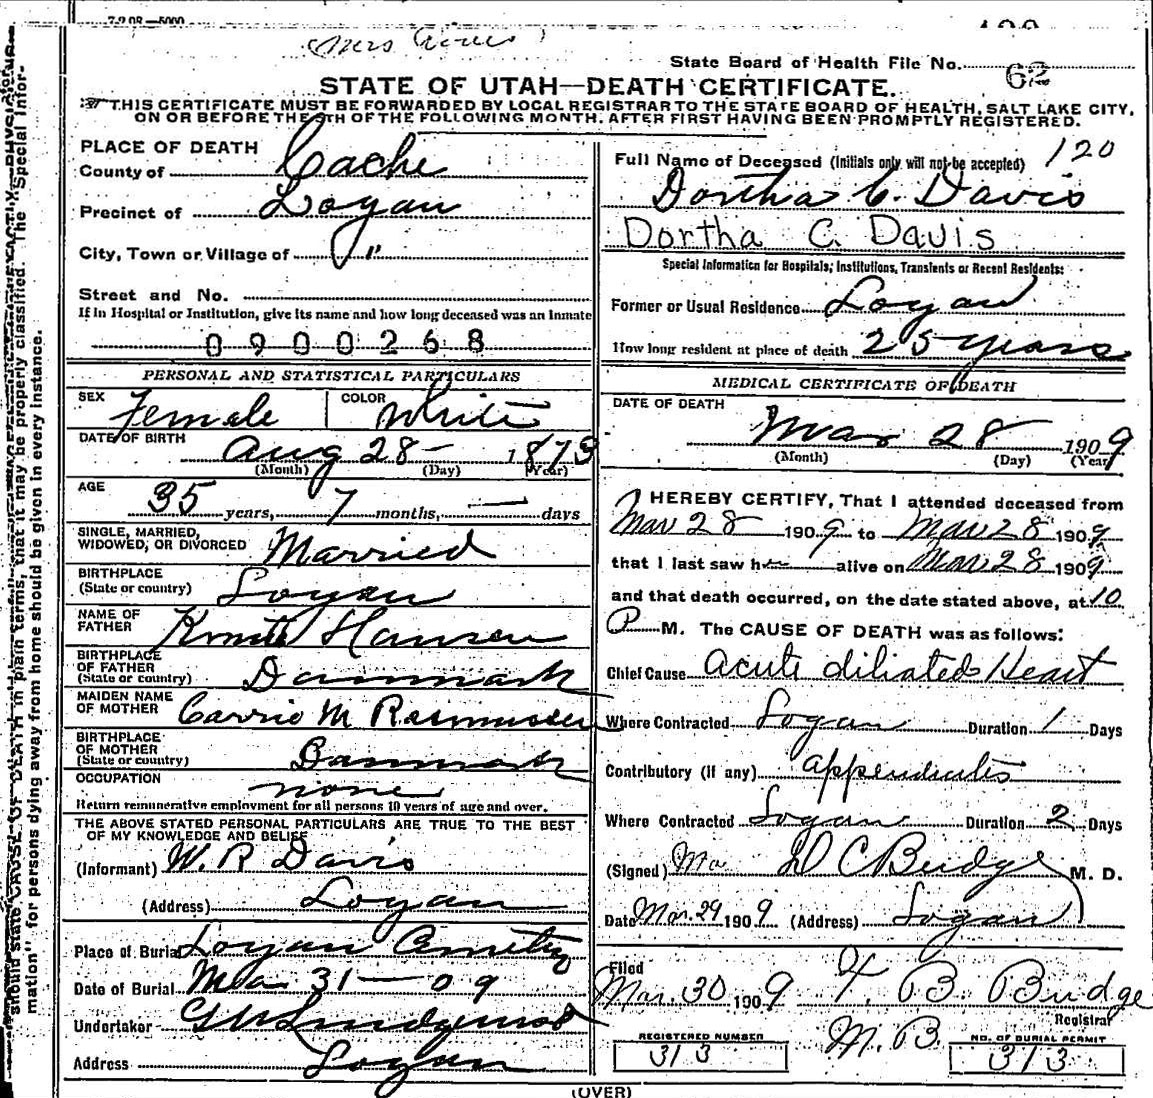 7-2 08—5000
Mrs
State Board of Health File No. 62
STATE OF UTAH—DEATH CERTIFICATE.
THIS CERTIFICATE MUST BE FORWARDED BY LOCAL REGISTRAR TO THE STATE BOARD OF HEALTH, SALT LAKE CITY,
ON OR BEFORE THE 5TH OF THE FOLLOWING MONTH, AFTER FIRST HAVING BEEN PROMPTLY REGISTERED.
PLACE OF DEATH
County of Cache
Precinct of Logan
City, Town or Village of "
Street and No.
If in Hospital or Institution, give its name and how long deceased was an inmate
0900268
PERSONAL AND STATISTICAL PARTICULARS
SEX Female COLOR White
DATE OF BIRTH Aug 28— 1873
(Month) (Day) (Year)
AGE 35 years, 7 months, — days
SINGLE, MARRIED,
WIDOWED, OR DIVORCED Married
BIRTHPLACE
(State or country) Logan
NAME OF
FATHER Hansen
BIRTHPLACE
OF FATHER
(State or country) Danmark
MAIDEN NAME
OF MOTHER Carrie M Rasmussen
BIRTHPLACE
OF MOTHER
(State or country) Danmark
OCCUPATION none
Return remunerative employment for all persons 10 years of age and over.
THE ABOVE STATED PERSONAL PARTICULARS ARE TRUE TO THE BEST
OF MY KNOWLEDGE AND BELIEF
(Informant) W. R Davis
(Address) Logan
Place of Burial Logan Cemetry
Date of Burial Mar 31—09
Undertaker
Address Logan
120
Full Name of Deceased (Initials only will not be accepted)
Dortha C. Davis
Dortha C. Davis
Special Information for Hospitals, Institutions, Transients or Recent Residents:
Former or Usual Residence Logan
How long resident at place of death 25 years
MEDICAL CERTIFICATE OF DEATH
DATE OF DEATH
Mar 28 1909
(Month) (Day) (Year)
I HEREBY CERTIFY, That I attended deceased from
Mar 28 1909 to Mar 28 1909
that I last saw h alive on Mar 28 1909
and that death occurred, on the date stated above, at 10
P M. The CAUSE OF DEATH was as follows:
Chief Cause Acute diliated Heart
Where Contracted Logan Duration 1 Days
Contributory (if any) Appendicites
Where Contracted Logan Duration 2 Days
(Signed) D C Budge M. D.
Date Mar. 29 1909 (Address) Logan
Filed
Mar. 30 1909 F. B. Budge
Registrar
M.B.
REGISTERED NUMBER
313
NO. OF BURIAL PERMIT
313
(OVER)
should state CAUSE OF DEATH in plain terms, that it may be properly classified. The "Special Infor-
mation" for persons dying away from home should be given in every instance.